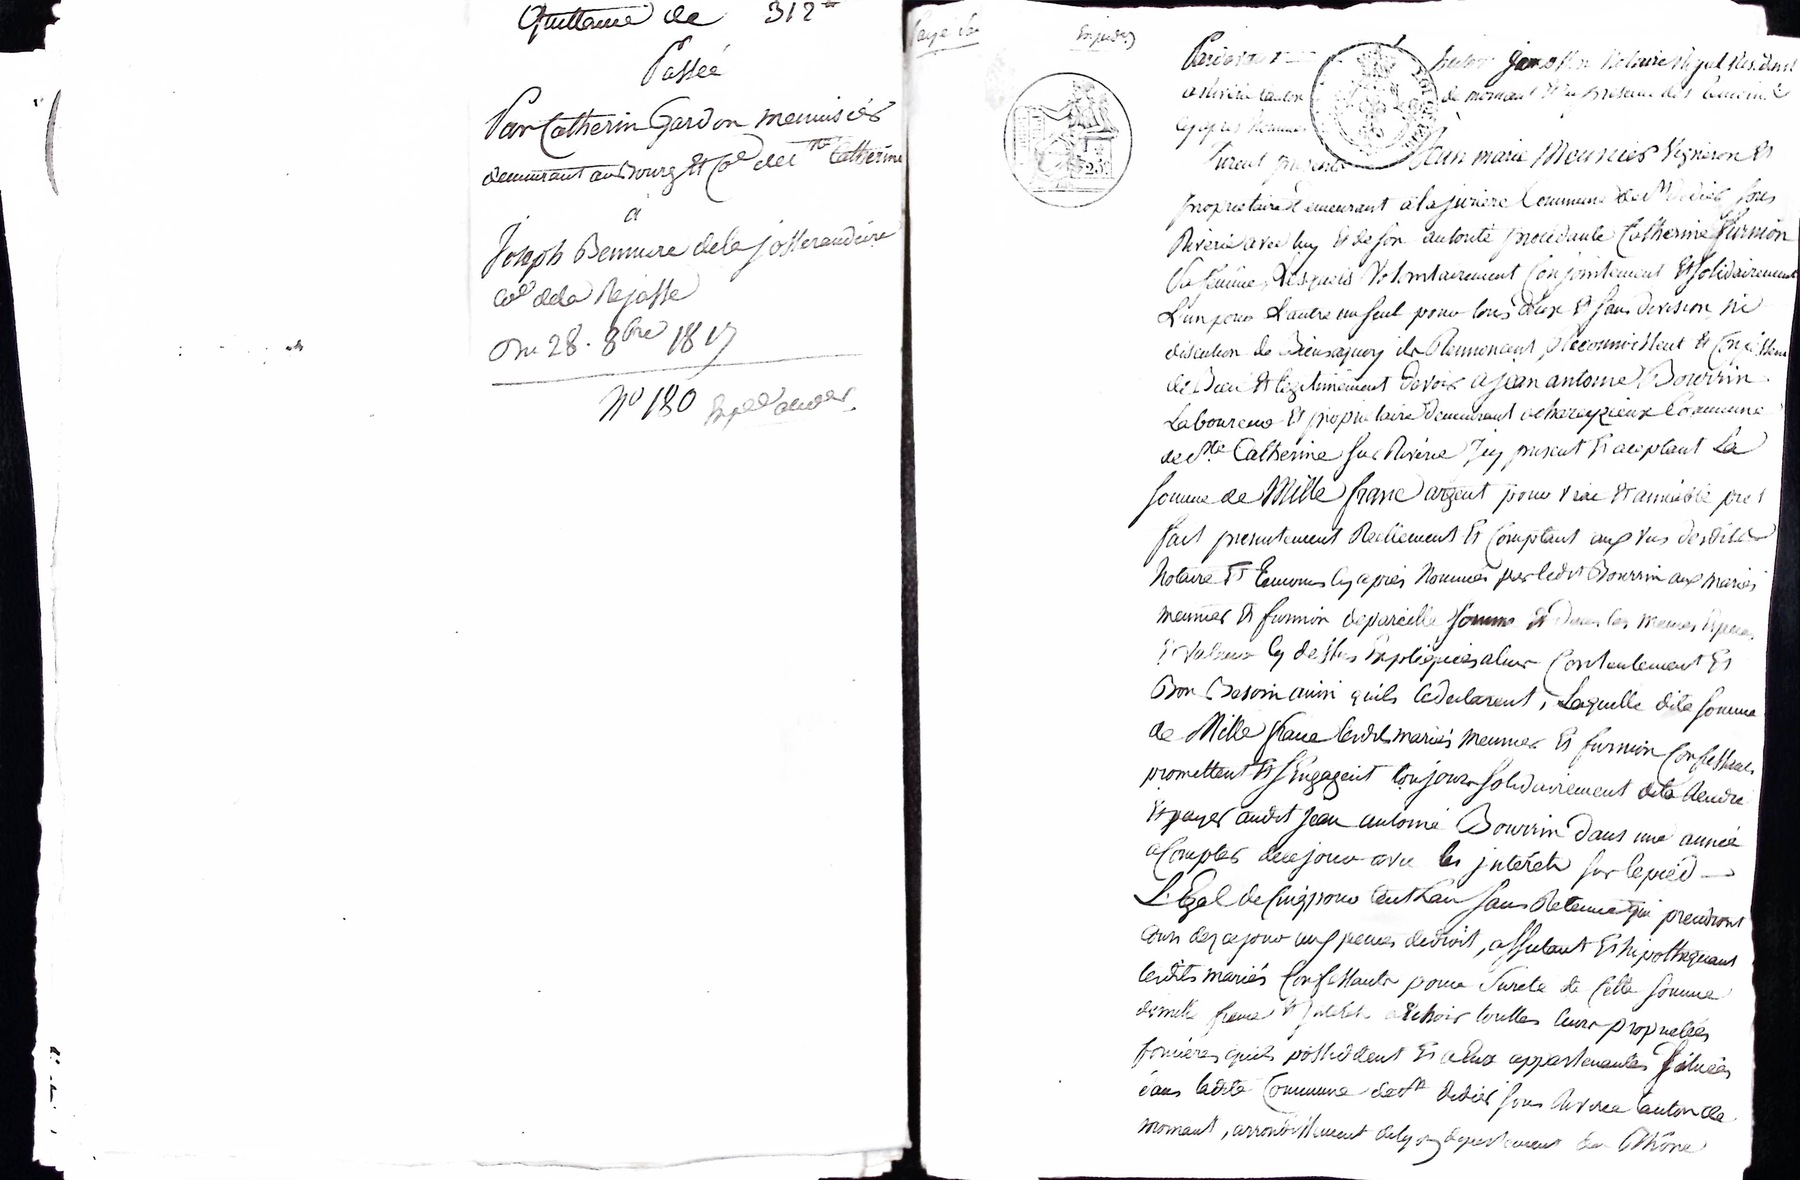 Quittance de 312 tt
Passée
Par Catherin Gardon menuisier
demeurant au Bourg et Coe de Ste Catherine
a
Joseph Bennière de la josserandière
coe de la Rajasse
Du 28. 8bre 1817
No 180 Expedd
Payé
Expedd
Pardevant notaire Royal Resident
a Riverie canton de mornant et en presence des temoins
cy apres nommés
furent presents Jean marie Meunier vigneron et
proprietaire demeurant a la commune de st didier sous
Riverie avec luy et de son autorité procedante Catherine furnion
sa femme, Lesquels Volontairement Conjointement et solidairement
L'un pour L'autre un seul pour tous deux et sans division ni
discution de Biens a quoy ils Renoncent, Reconnoissent et Confessent
de Devoir et legitimement devoir a jean antoine Bourrin
Laboureur et proprietaire demeurant a Commune
de ste Catherine sur Riverie Icy present et aceptant La
somme de Mille franc argent pour vrai et amiable pret
fait presentement Reellement et Comptant aux vus desdits
Notaire et Temoins cy apres Nommés par ledit Bourrin aux mariés
meunier et furnion de pareille somme et dans les memes especes
et valeur cy dessus Expliquées a leur Contentement et
Bon Besoin ainsi quils le declarent, Laquelle dite somme
de Mille franc lesdits mariés meunier et furnion Confessants
promettent et s'Engagent toujours solidairement de la Rendre
et payer audit jean antoine Bourrin dans une année
a Compter de ce jour avec les intérêts sur le pied
Légal de Cinq pour Cent L'an sans Retenue qui prendront
cours dez ce jour aux peines de droit, affectant et hipothequant
lesdits mariés Confessants pour sureté de Cette somme
de mille franc et intérêts a Echoir touttes leurs propriétés
foncières quils possèdent et a Eux appartenantes situées
dans ladite Commune de st didier sous Riverie canton de
mornant, arrondissement de Lyon departement du Rhône